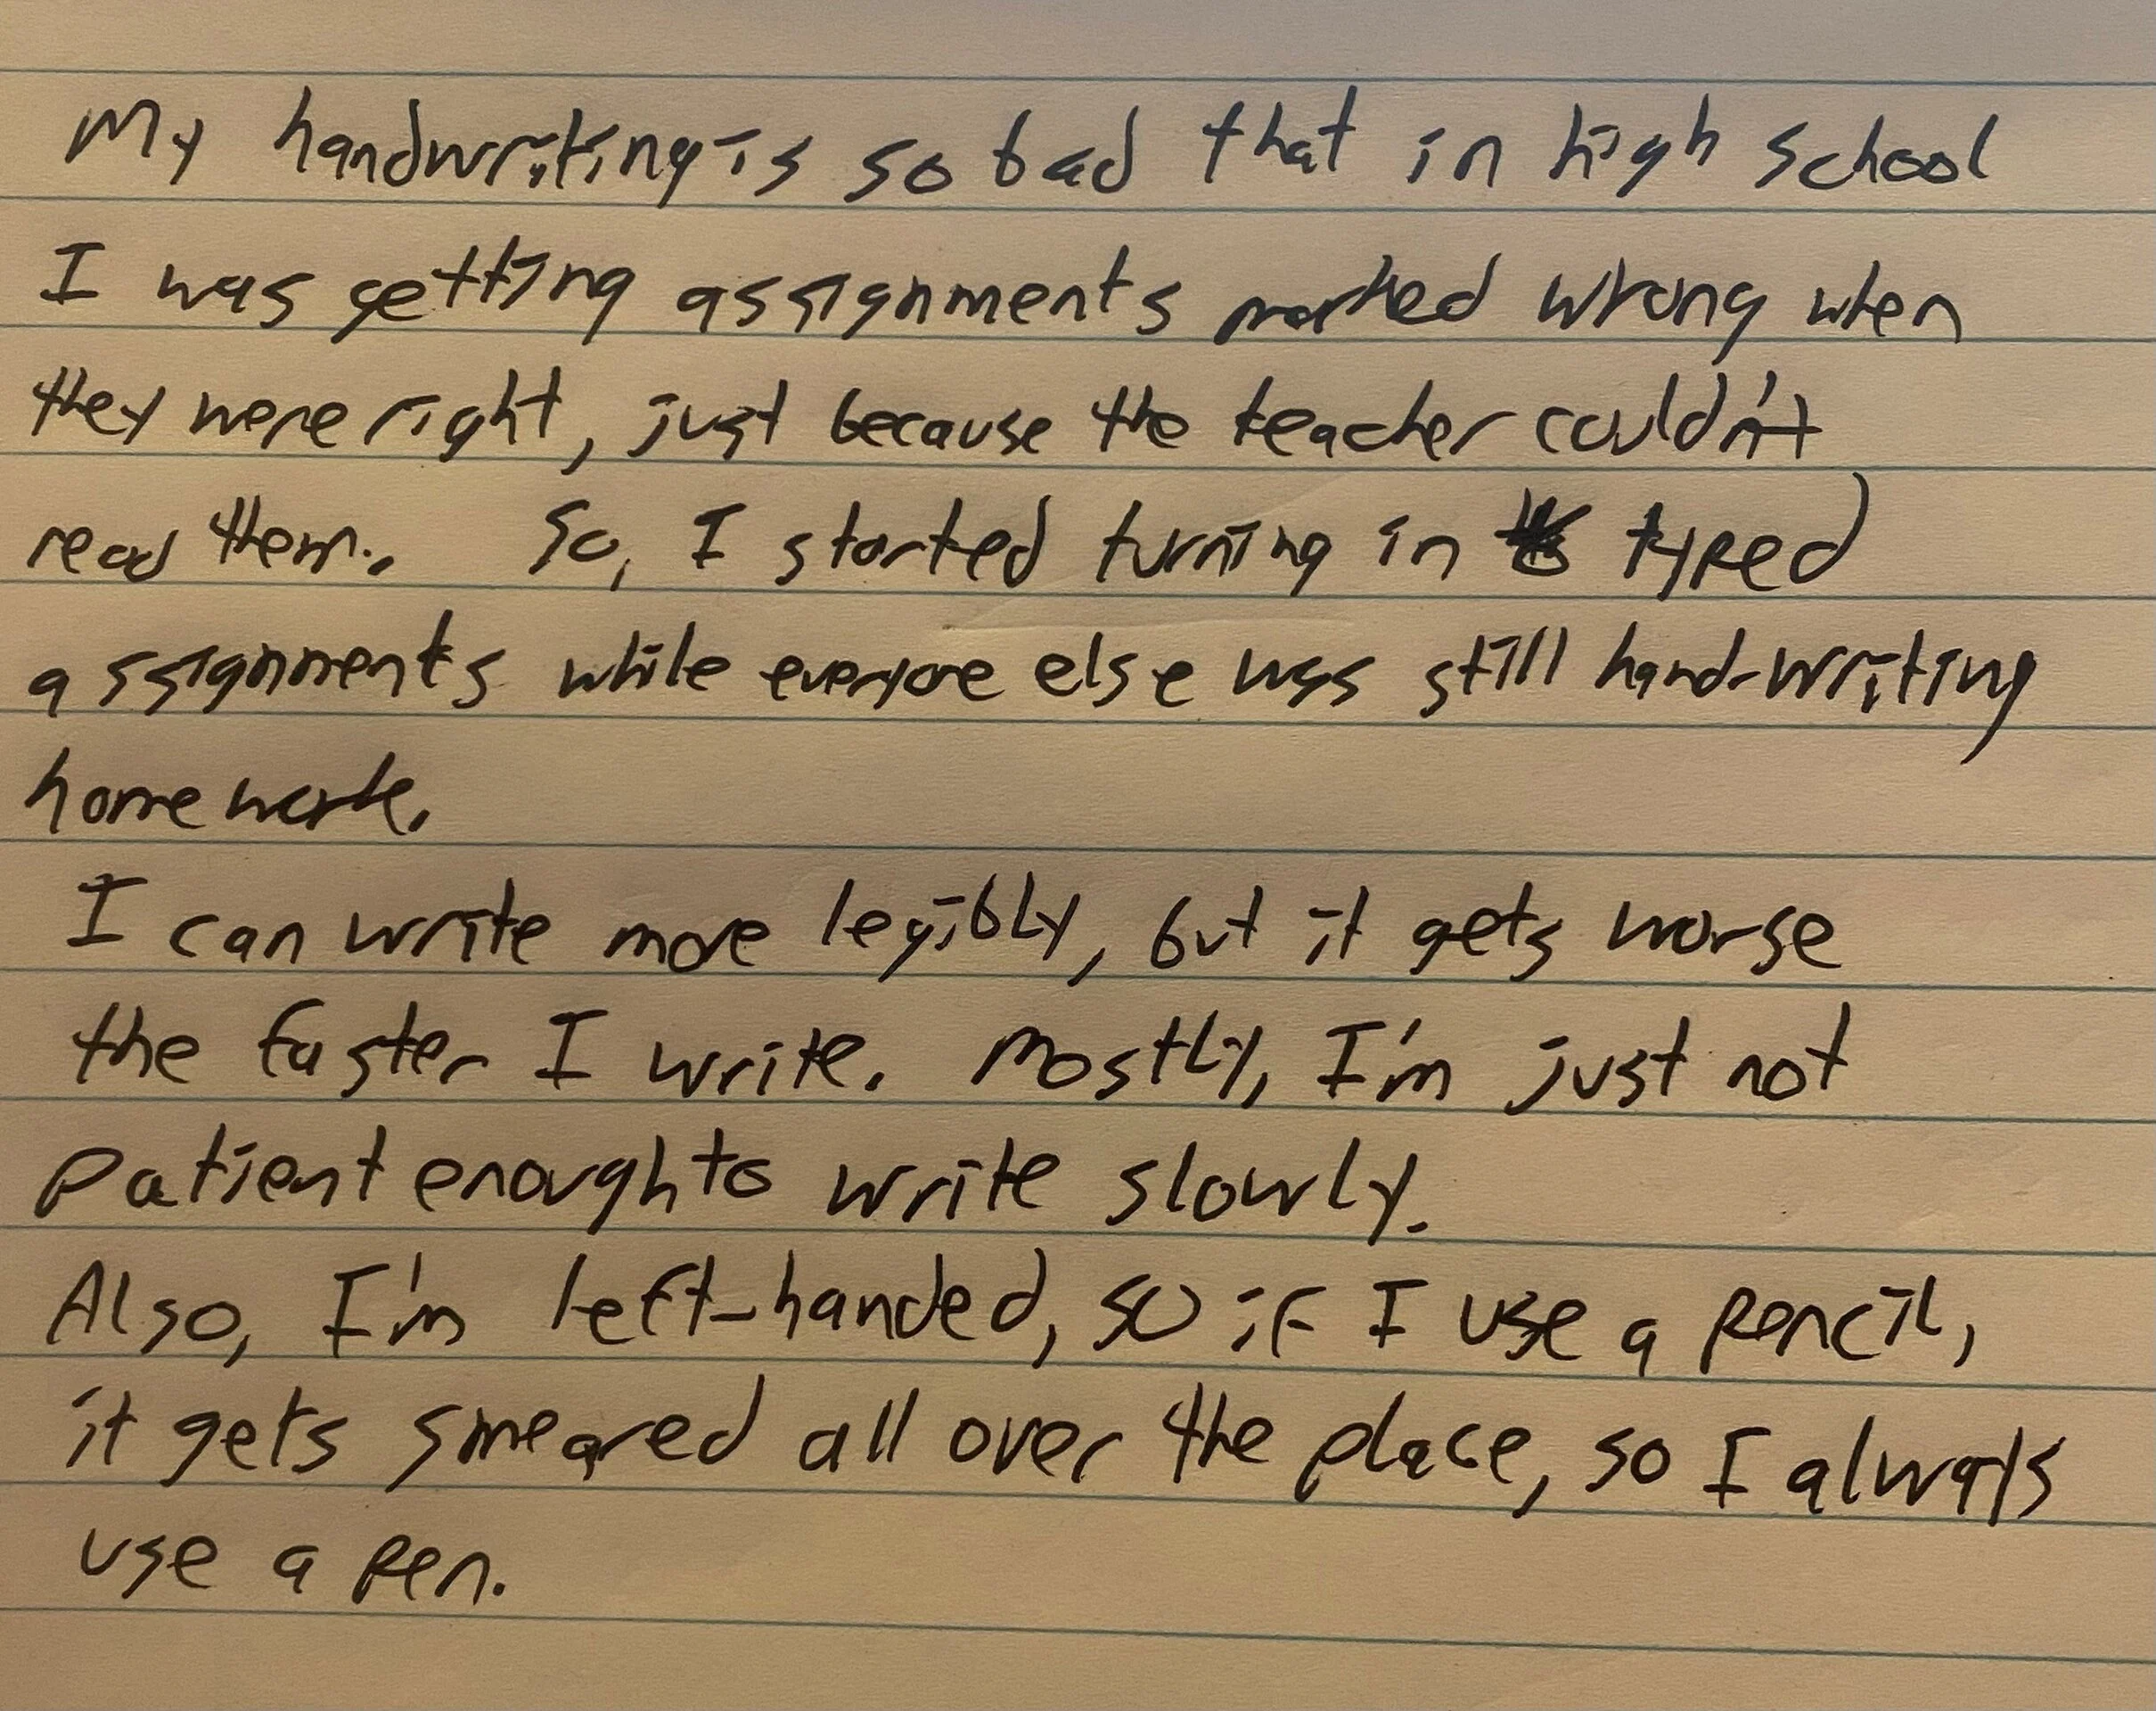 My handwriting is so bad that in high school
I was getting assignments marked wrong when
they were right, just because the teacher couldn't
read them. So, I started turning in typed
assignments while everyone else was still hand-writing
homework.
I can write more legibly, but it gets worse
the faster I write. Mostly, I'm just not
patient enough to write slowly.
Also, I'm left-handed, so if I use a pencil,
it gets smeared all over the place, so I always
use a pen.